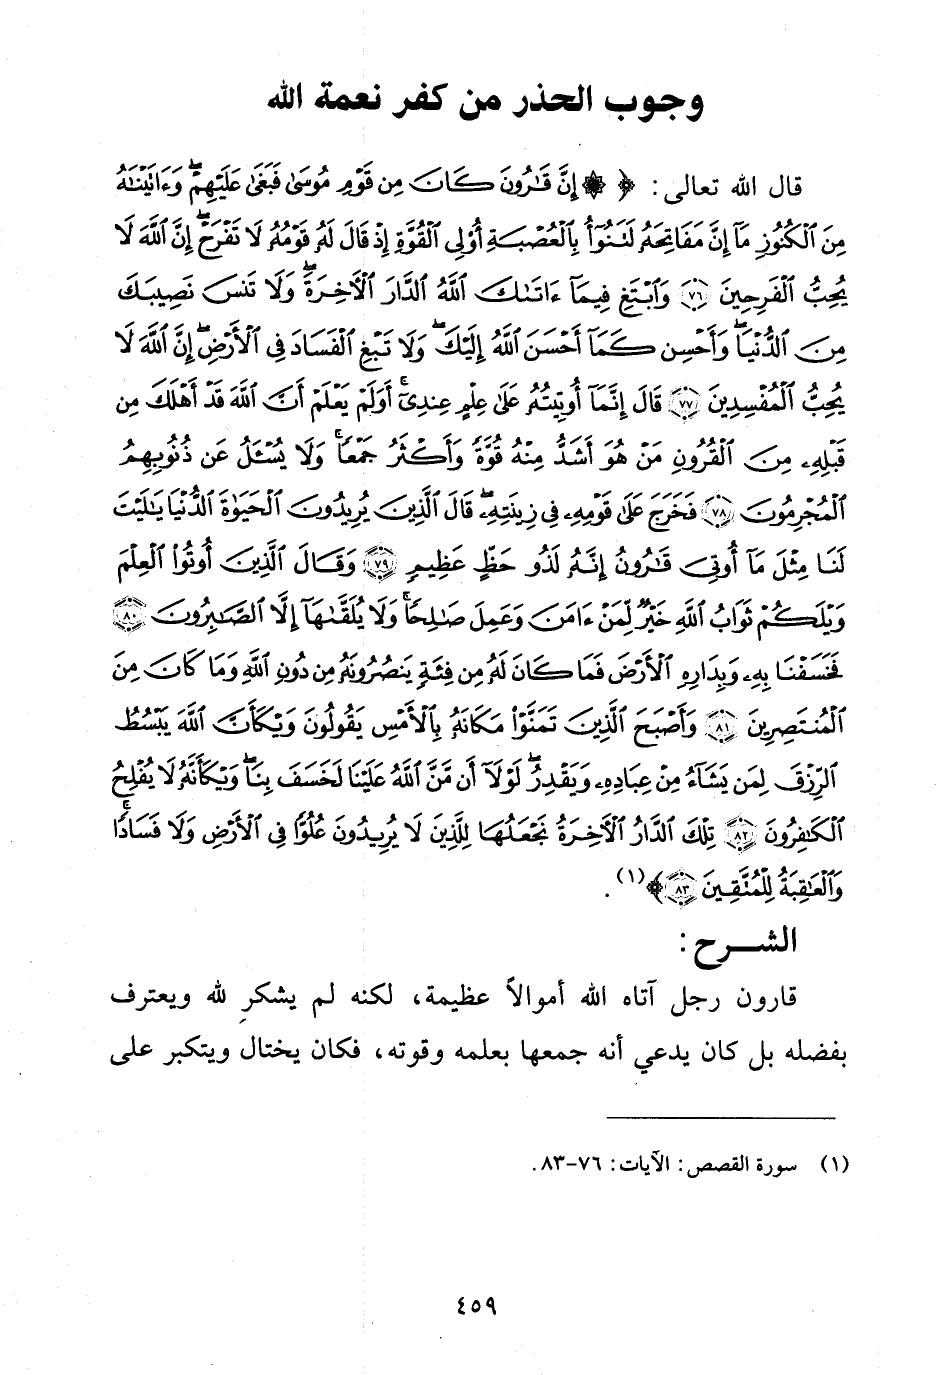 وجوب الحذر من كفر نعمة الله
قال الله تعالى: ﴿ ۞ إِنَّ قَٰرُونَ كَانَ مِن قَوْمِ مُوسَىٰ فَبَغَىٰ عَلَيْهِمْ ۖ وَءَاتَيْنَٰهُ
مِنَ ٱلْكُنُوزِ مَآ إِنَّ مَفَاتِحَهُۥ لَتَنُوٓأُ بِٱلْعُصْبَةِ أُو۟لِى ٱلْقُوَّةِ إِذْ قَالَ لَهُۥ قَوْمُهُۥ لَا تَفْرَحْ ۖ إِنَّ ٱللَّهَ لَا
يُحِبُّ ٱلْفَرِحِينَ ٧٦ وَٱبْتَغِ فِيمَآ ءَاتَىٰكَ ٱللَّهُ ٱلدَّارَ ٱلْءَاخِرَةَ ۖ وَلَا تَنسَ نَصِيبَكَ
مِنَ ٱلدُّنْيَا ۖ وَأَحْسِن كَمَآ أَحْسَنَ ٱللَّهُ إِلَيْكَ ۖ وَلَا تَبْغِ ٱلْفَسَادَ فِى ٱلْأَرْضِ ۖ إِنَّ ٱللَّهَ لَا
يُحِبُّ ٱلْمُفْسِدِينَ ٧٧ قَالَ إِنَّمَآ أُوتِيتُهُۥ عَلَىٰ عِلْمٍ عِندِىٓ ۚ أَوَلَمْ يَعْلَمْ أَنَّ ٱللَّهَ قَدْ أَهْلَكَ مِن
قَبْلِهِۦ مِنَ ٱلْقُرُونِ مَنْ هُوَ أَشَدُّ مِنْهُ قُوَّةً وَأَكْثَرُ جَمْعًا ۚ وَلَا يُسْـَٔلُ عَن ذُنُوبِهِمُ
ٱلْمُجْرِمُونَ ٧٨ فَخَرَجَ عَلَىٰ قَوْمِهِۦ فِى زِينَتِهِۦ ۖ قَالَ ٱلَّذِينَ يُرِيدُونَ ٱلْحَيَوٰةَ ٱلدُّنْيَا يَٰلَيْتَ
لَنَا مِثْلَ مَآ أُوتِىَ قَٰرُونُ إِنَّهُۥ لَذُو حَظٍّ عَظِيمٍ ٧٩ وَقَالَ ٱلَّذِينَ أُوتُوا۟ ٱلْعِلْمَ
وَيْلَكُمْ ثَوَابُ ٱللَّهِ خَيْرٌ لِّمَنْ ءَامَنَ وَعَمِلَ صَٰلِحًا ۚ وَلَا يُلَقَّىٰهَآ إِلَّا ٱلصَّٰبِرُونَ ٨٠
فَخَسَفْنَا بِهِۦ وَبِدَارِهِ ٱلْأَرْضَ فَمَا كَانَ لَهُۥ مِن فِئَةٍ يَنصُرُونَهُۥ مِن دُونِ ٱللَّهِ وَمَا كَانَ مِنَ
ٱلْمُنتَصِرِينَ ٨١ وَأَصْبَحَ ٱلَّذِينَ تَمَنَّوْا۟ مَكَانَهُۥ بِٱلْأَمْسِ يَقُولُونَ وَيْكَأَنَّ ٱللَّهَ يَبْسُطُ
ٱلرِّزْقَ لِمَن يَشَآءُ مِنْ عِبَادِهِۦ وَيَقْدِرُ ۖ لَوْلَآ أَن مَّنَّ ٱللَّهُ عَلَيْنَا لَخَسَفَ بِنَا ۖ وَيْكَأَنَّهُۥ لَا يُفْلِحُ
ٱلْكَٰفِرُونَ ٨٢ تِلْكَ ٱلدَّارُ ٱلْءَاخِرَةُ نَجْعَلُهَا لِلَّذِينَ لَا يُرِيدُونَ عُلُوًّا فِى ٱلْأَرْضِ وَلَا فَسَادًا ۚ
وَٱلْعَٰقِبَةُ لِلْمُتَّقِينَ ٨٣ ﴾(١).
الشـرح:
قارون رجل آتاه الله أموالاً عظيمة، لكنه لم يشكرِ لله ويعترف
بفضله بل كان يدعي أنه جمعها بعلمه وقوته، فكان يختال ويتكبر على
(١) سورة القصص: الآيات: ٧٦-٨٣.
٤٥٩